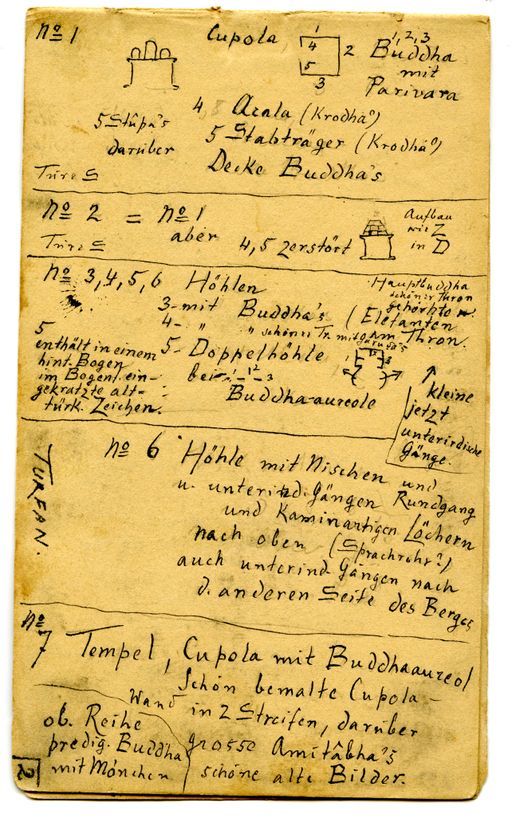 No 1
Cupola,
4
5
2
3
1, 2, 3
Buddha
mit
Parivara
5 Stûpa's
darüber
4, Acala (Krodha?)
5 Stabträger (Krodha?)
Decke Buddha's
Türe S
No 2 = No 1
aber 4,5 zerstört
Türe S
Aufbau
wie Z
in D
No 3,4,5,6 Höhlen
3 - mit Buddha's
4 - " " schöner Tr. mit
5 - Doppelhöhle
bei
Buddha-aureole
Hauptbuddha
schöner Thron
gehörnte
(Elefanten
am Thron.
5
enthält in einem
hint. Bogen
im Bogent. ein-
gekratzte alt-
türk. Zeichen.
kleine
jetzt
unterirdische
Gänge.
TURFAN.
No 6 Höhle mit Nischen und
u. unterird. Gängen Rundgang
und Kaminartigen Löchern
nach oben (Sprachrohr?)
auch unterird. Gängen nach
d. anderen Seite des Berges
No
7 Tempel, Cupola mit Buddhaaureol
Schön bemalte Cupola -
Wand in 2 Streifen, darüber
ob. Reihe
predig. Buddha
mit Mönchen
grosse Amitâbha's
schöne alte Bilder.
2